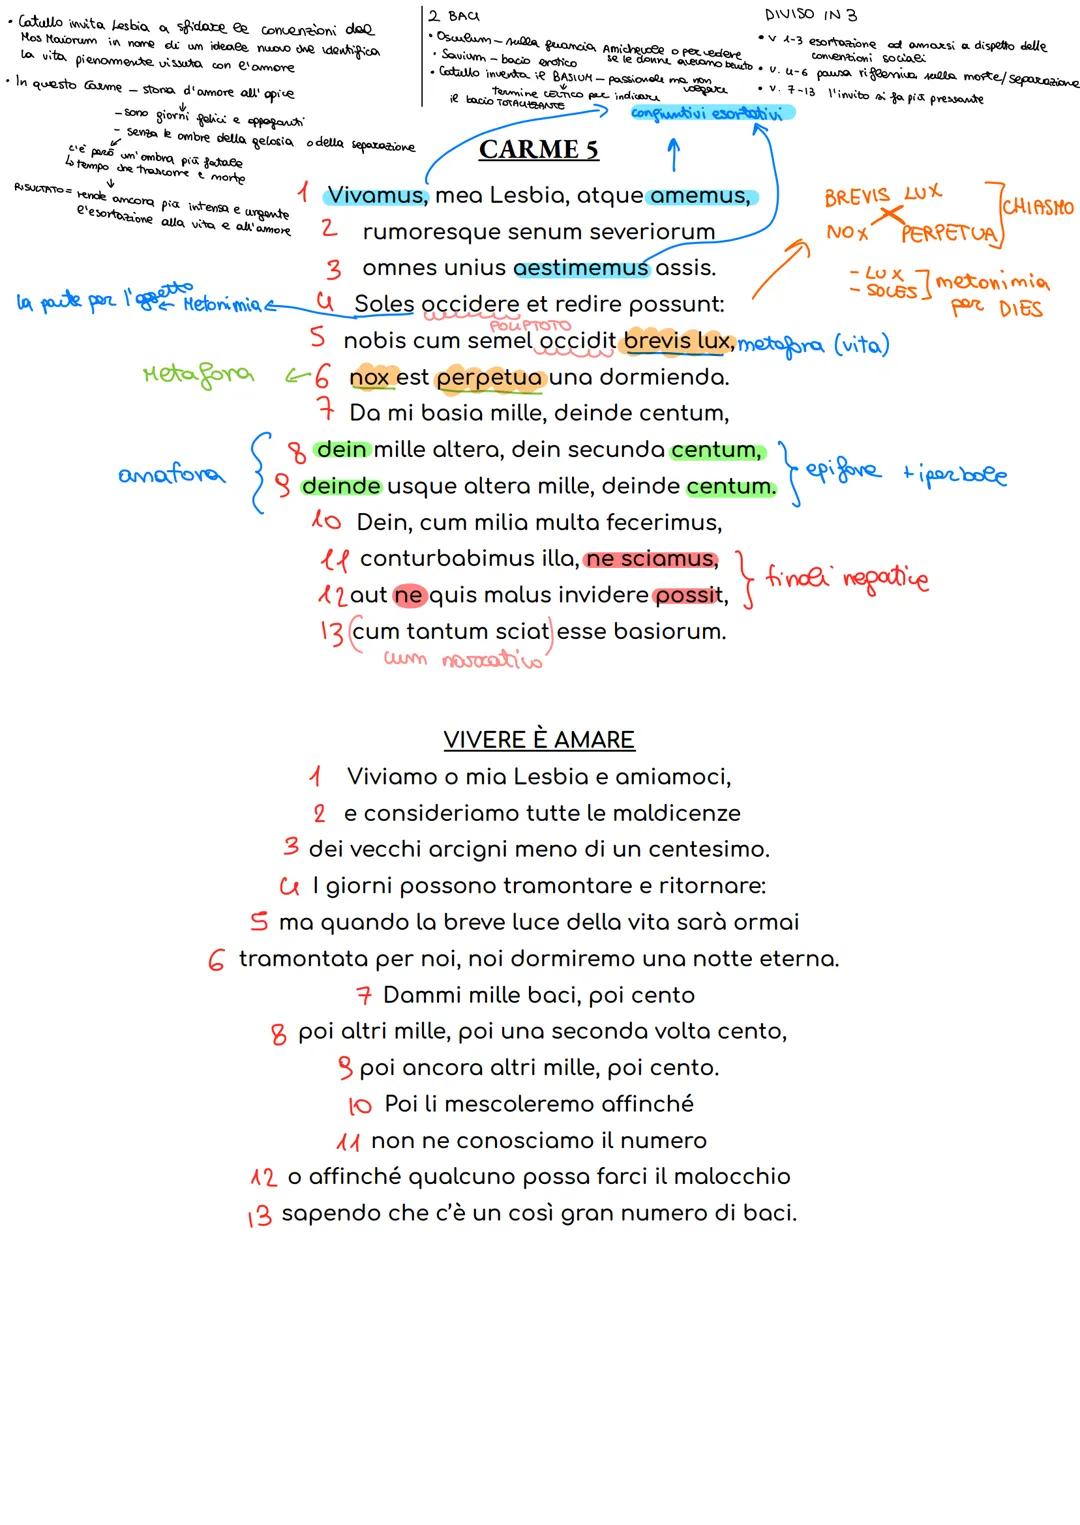 • Catullo invita Lesbia a sfidare le convenzioni del
Mos Maiorum in nome di un ideale nuovo che identifica
la vita pienamente vissuta con l'amore
• In questo Carme – storia d'amore all'apice
– sono giorni felici e appaganti
– senza le ombre della gelosia o della separazione
c'è però un'ombra più fatale
↳ tempo che trascorre e morte
RISULTATO = rende ancora più intensa e urgente
l'esortazione alla vita e all'amore
2 BACI
• Osculum – sulla guancia Amichevole o per vedere
se le donne avevano bevuto
• Savium – bacio erotico
• Catullo inventa il BASIUM – passionale ma non
volgare
termine CELTICO per indicare
il bacio TOTALIZZANTE
DIVISO IN 3
• v 1-3 esortazione ad amarsi a dispetto delle
convenzioni sociali
• v. 4-6 pausa riflessiva sulla morte/separazione
• v. 7-13 l'invito si fa più pressante
congiuntivi esortativi
CARME 5
1 Vivamus, mea Lesbia, atque amemus,
2 rumoresque senum severiorum
3 omnes unius aestimemus assis.
4 Soles occidere et redire possunt:
POLIPTOTO
5 nobis cum semel occidit brevis lux, metafora (vita)
6 nox est perpetua una dormienda.
7 Da mi basia mille, deinde centum,
8 dein mille altera, dein secunda centum,
9 deinde usque altera mille, deinde centum.
10 Dein, cum milia multa fecerimus,
11 conturbabimus illa, ne sciamus,
12 aut ne quis malus invidere possit,
13 (cum tantum sciat) esse basiorum.
cum narrativo
BREVIS LUX
NOX PERPETUA
CHIASMO
– LUX
– SOLES
metonimia
per DIES
la parte per l'oggetto ← Metonimia
Metafora
anafora
epifore + iperbole
finali negative
VIVERE È AMARE
1 Viviamo o mia Lesbia e amiamoci,
2 e consideriamo tutte le maldicenze
3 dei vecchi arcigni meno di un centesimo.
4 I giorni possono tramontare e ritornare:
5 ma quando la breve luce della vita sarà ormai
6 tramontata per noi, noi dormiremo una notte eterna.
7 Dammi mille baci, poi cento
8 poi altri mille, poi una seconda volta cento,
9 poi ancora altri mille, poi cento.
10 Poi li mescoleremo affinché
11 non ne conosciamo il numero
12 o affinché qualcuno possa farci il malocchio
13 sapendo che c'è un così gran numero di baci.